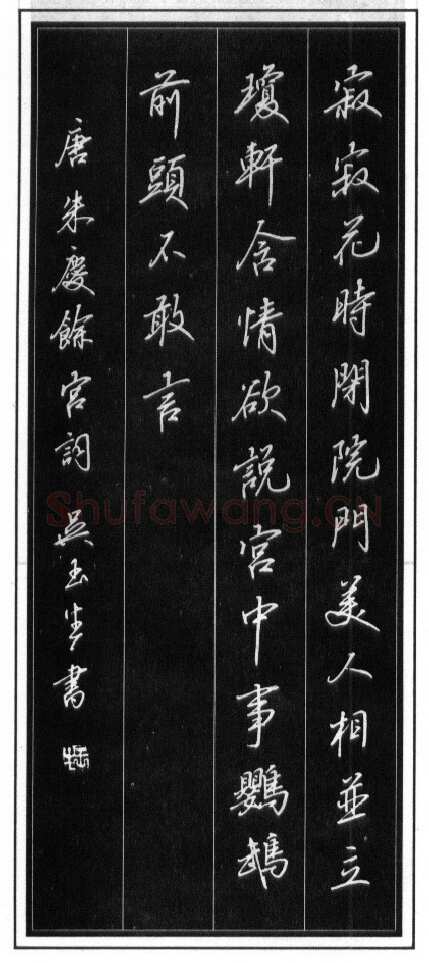 寂寂花時閉院門美人相並立
瓊軒含情欲說宮中事鸚鵡
前頭不敢言
唐朱慶餘宮詞 吳玉生書
Shufawang.CN